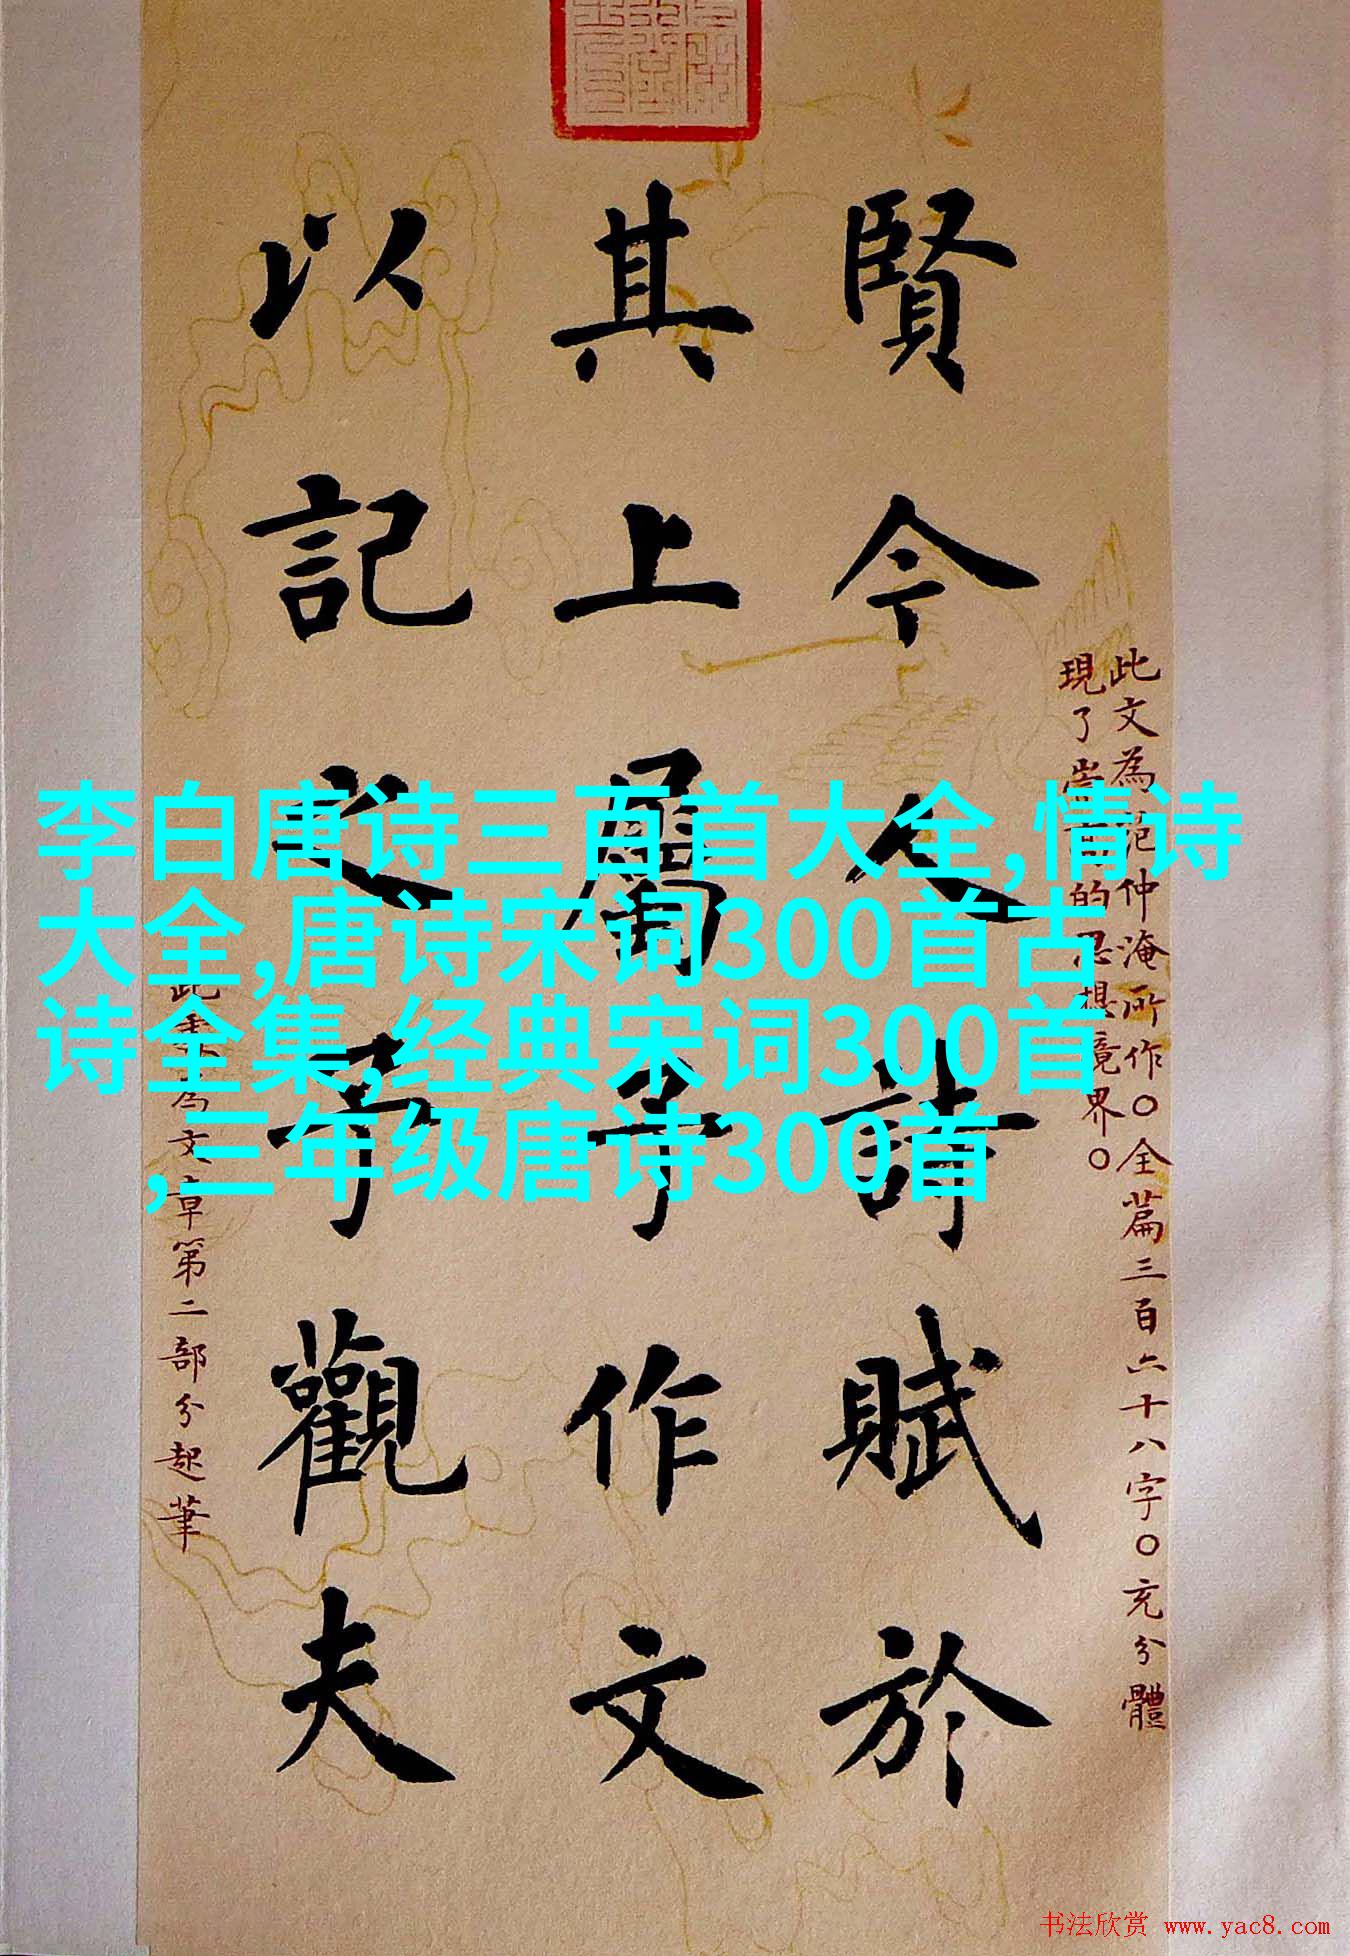 賢今人詩賦於
其上屬予作文
以記之予觀夫
此文為范仲淹所作〇全篇三百六十八字〇充分體
現了 的思想境界〇
為文章第二部分起筆
李白唐诗三百首大全,情诗
大全,唐诗宋词300首古
诗全集,经典宋词300首
,三年级唐诗300首
书法欣赏 www.yac8.com